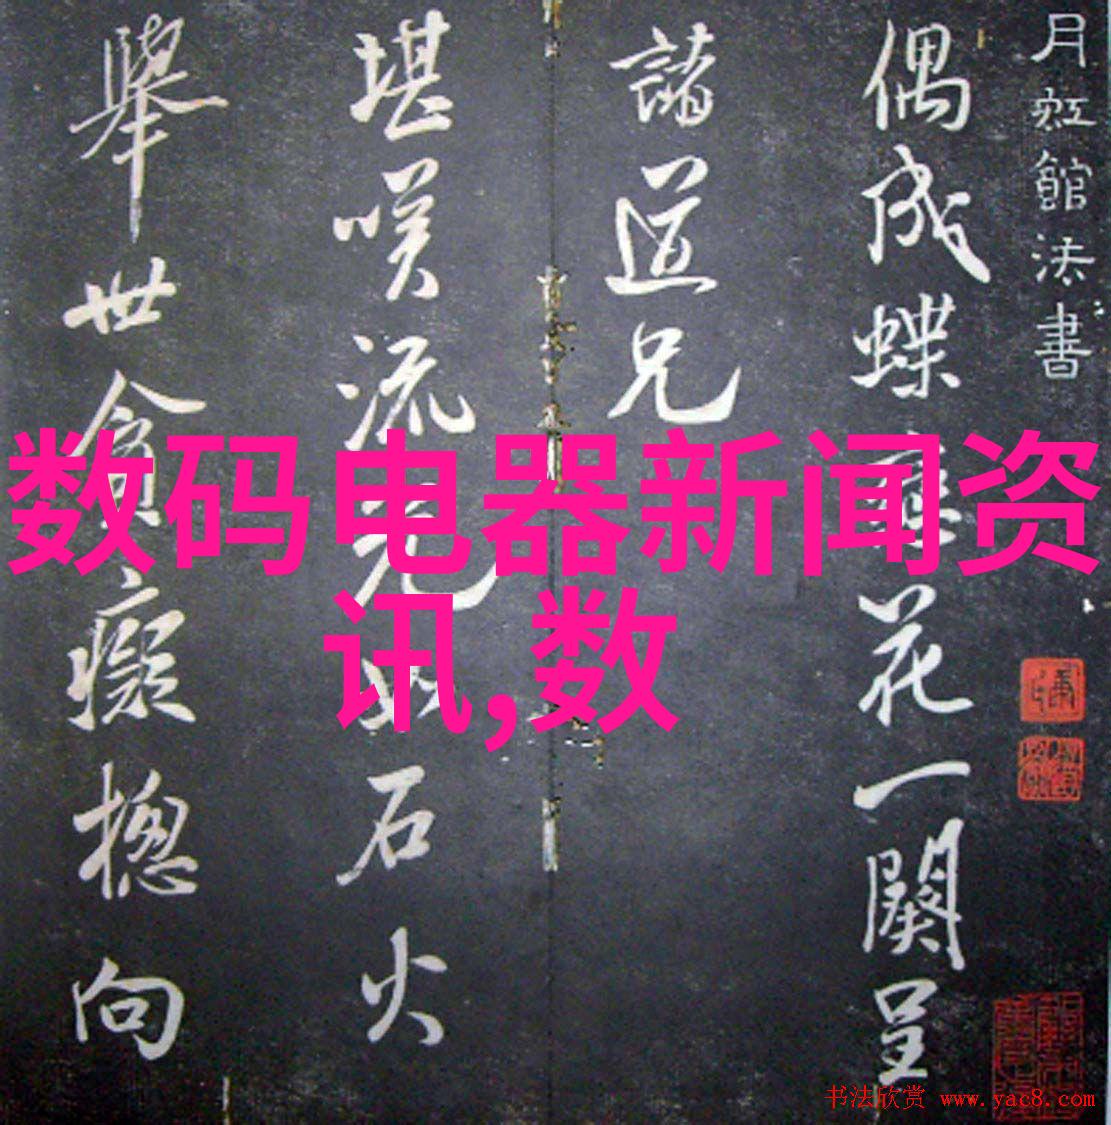 月虹館法書
偶成蝶戀花一闋呈
諸道兄
堪咲流光如石火
舉世貪癡摠向
数码电器新闻资
讯,数
书法欣赏 www.yac8.com